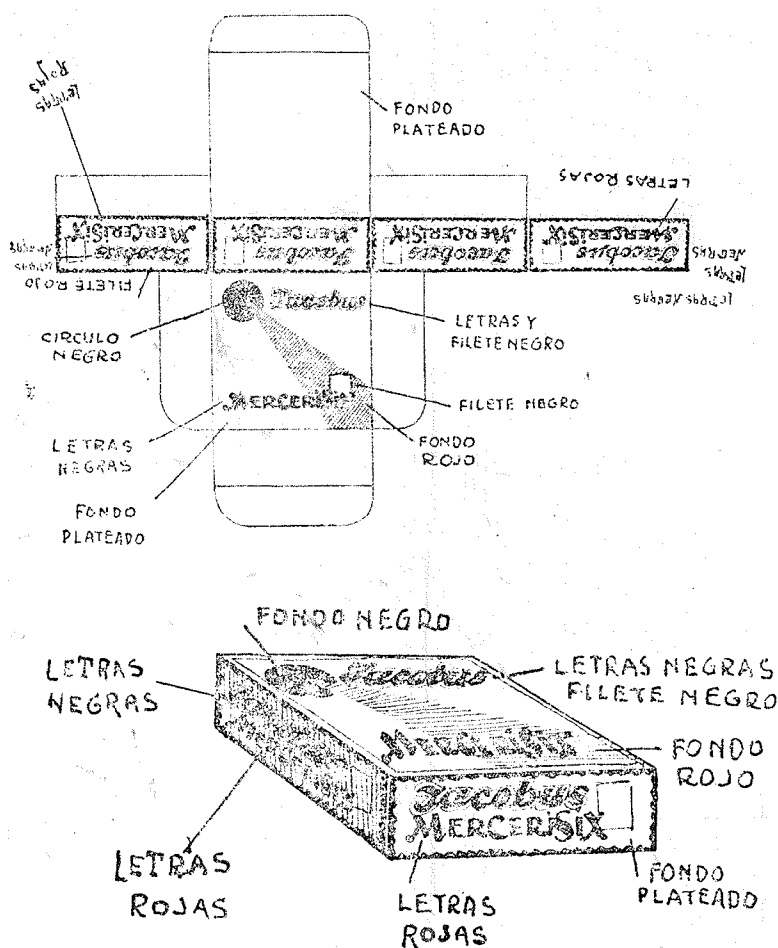 LETRAS
ROJAS
FONDO
PLATEADO
LETRAS ROJAS
Jacobus
MERCERISIX
Jacobus
MERCERISIX
Jacobus
MERCERISIX
Jacobus
MERCERISIX
LETRAS
NEGRAS
FILETE ROJO
LETRAS
NEGRAS
LETRAS NEGRAS
Jacobus
CIRCULO
NEGRO
LETRAS Y
FILETE NEGRO
MERCERISIX
FILETE NEGRO
LETRAS
NEGRAS
FONDO
ROJO
FONDO
PLATEADO
FONDO NEGRO
LETRAS
NEGRAS
Jacobus
LETRAS NEGRAS
FILETE NEGRO
MERCERISIX
FONDO
ROJO
Jacobus
MERCERISIX
LETRAS
ROJAS
LETRAS
ROJAS
FONDO
PLATEADO